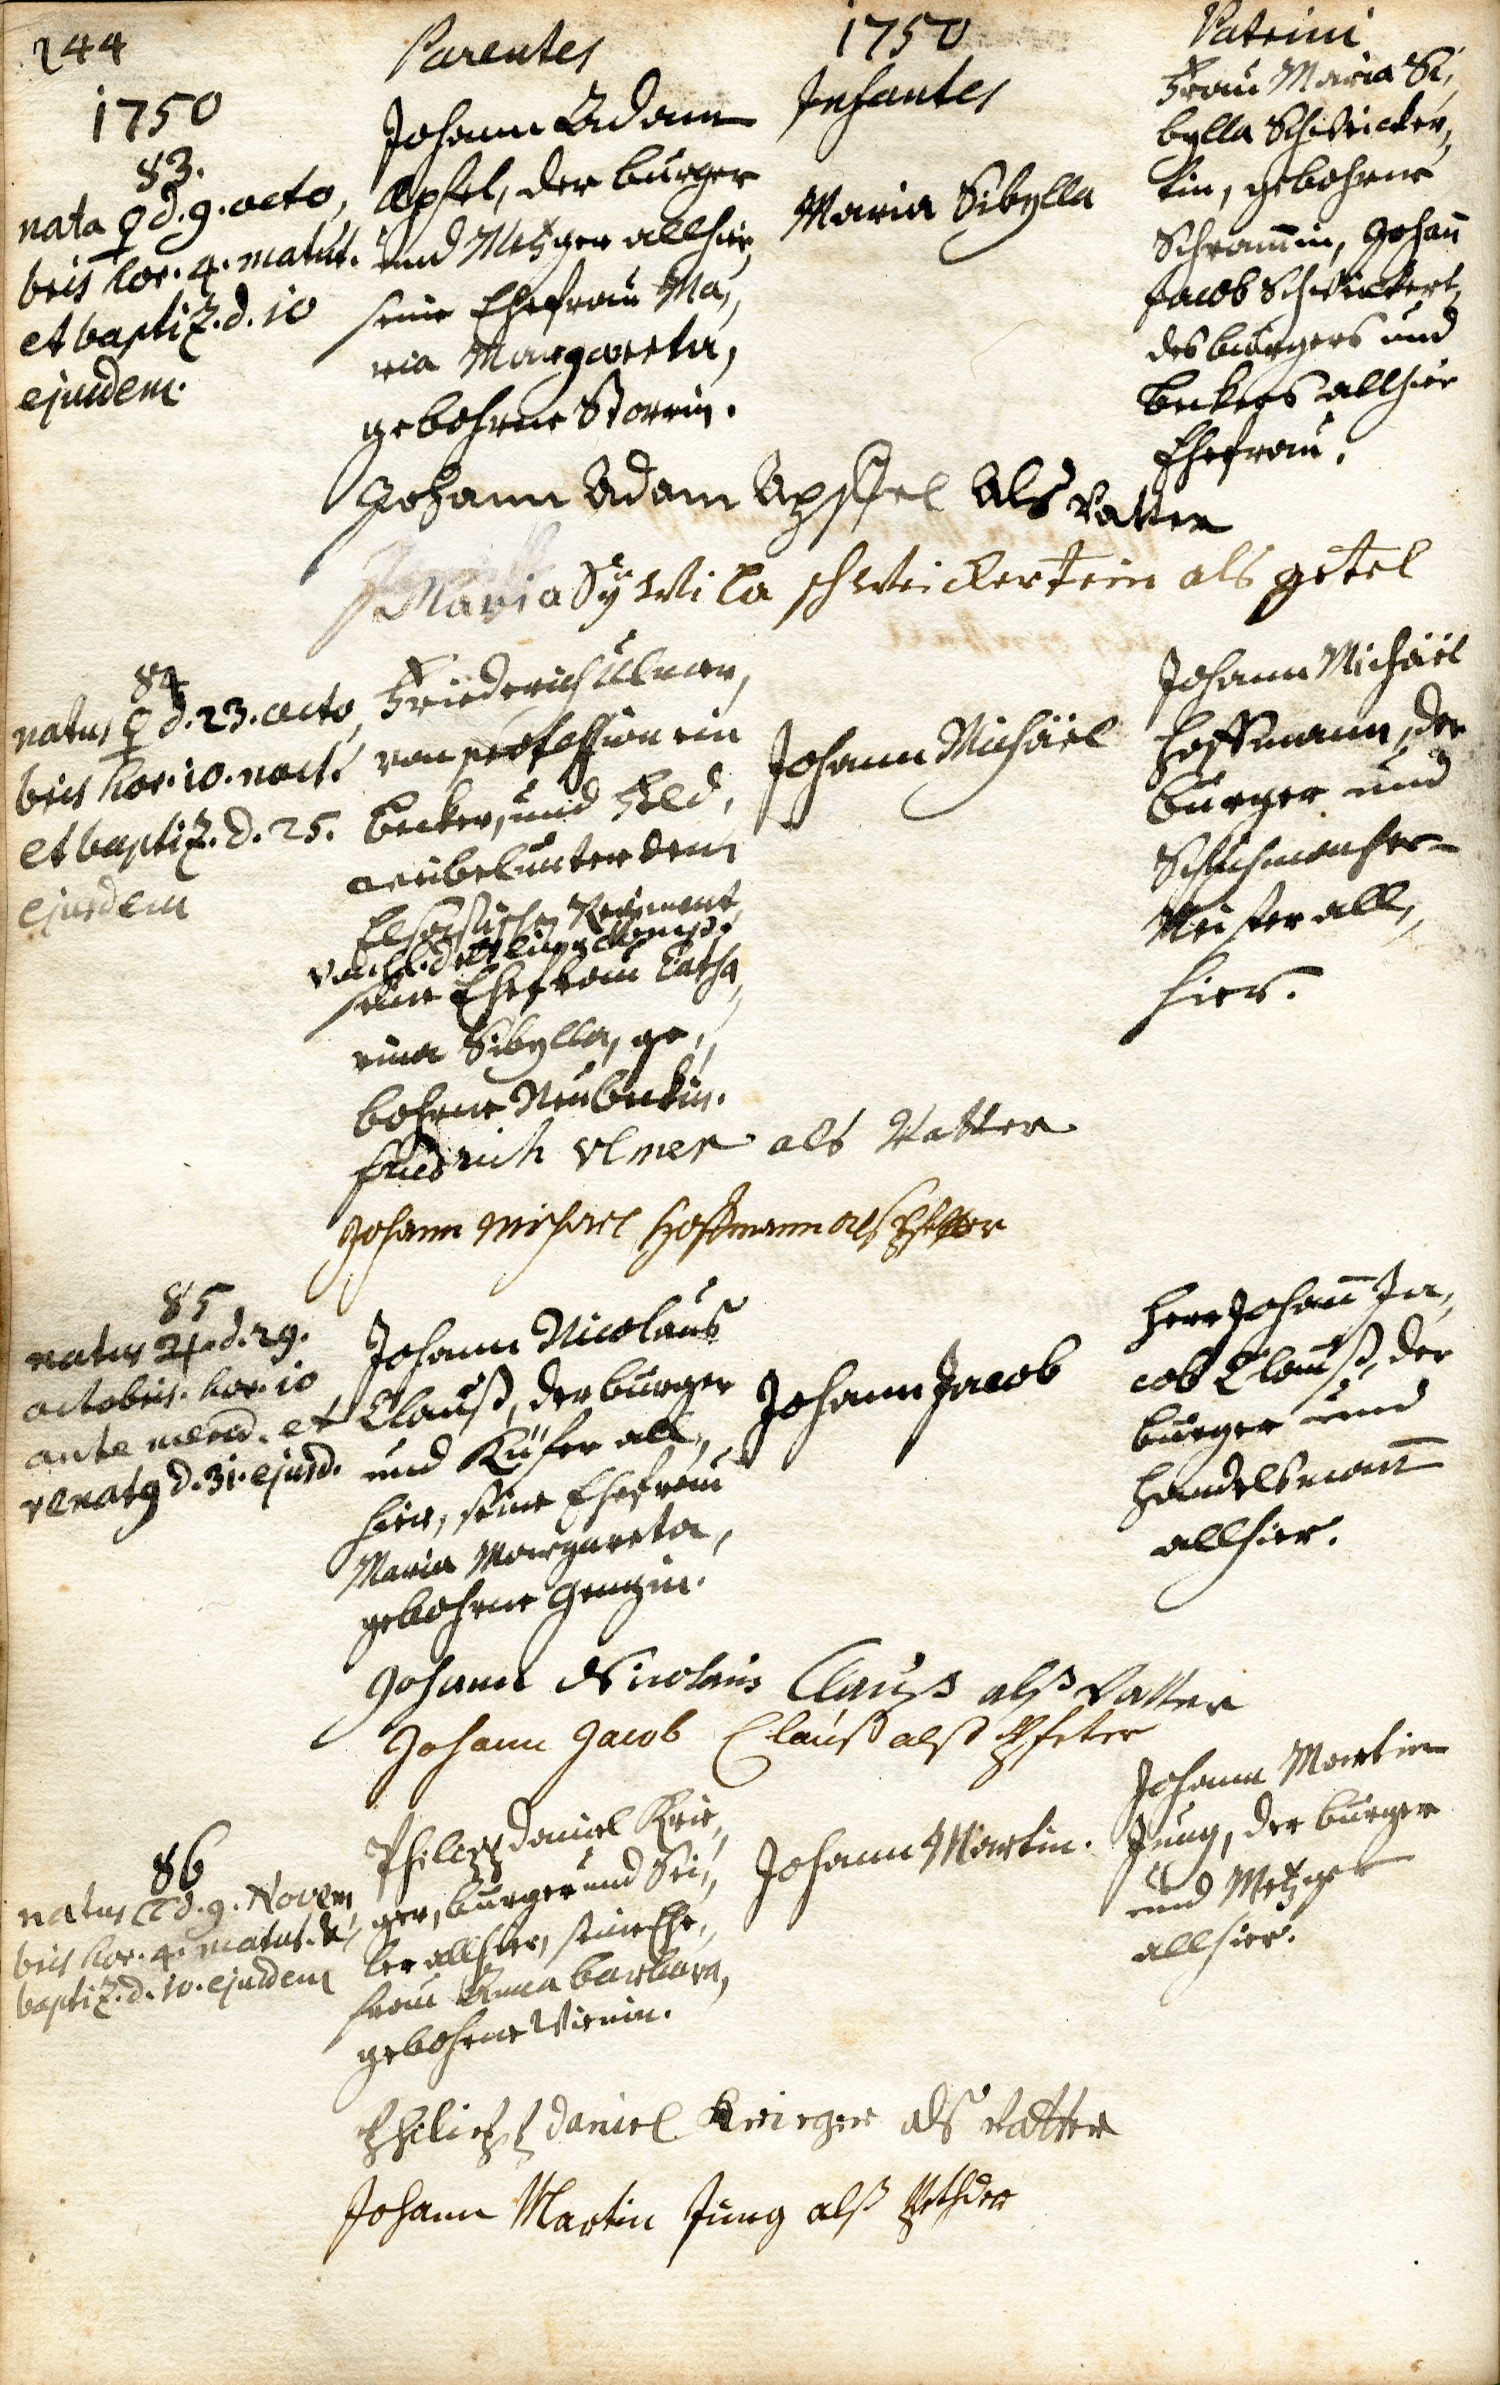 244
1750
Parentes
1750
Infantes
Patrini
83.
nata ♀ d. 9. octo,
bris hor. 4. matut.
et baptiz. d. 10
ejusdem.
Johann Adam
Apfel, der burger
und Metzger allhier,
seine Ehefrau Ma,,
ria Margareta,
gebohrne Storrin.
Maria Sibylla
Frau Maria Si,
bylla Schwicker,,
tin, gebohrne
Schram̄in, Johan̄
Jacob Schwickert,
des burgers und
beckers allhier
Ehefrau.
Johann Adam Apffel Als vatter
Maria Sÿwila schweickertein als getel
84
natus ♀ d. 23. octo,
bris hor. 10. noct.
et baptiz. d. 25.
ejusdem
Friederich Ulmer,
von profession ein
becker, und
unter dem
Elsasische Regiment,
seine Ehefrau Catha,,
rina Sibylla, ge,,
bohrne Neubeckin.
Johann Michäel
Johann Michäel
Hoffmann, der
burger und
Schuhmacher-
Meister all,,
hier.
friedrich ulmer als Vatter
Johann Michael Hoffmann als Pfetter
85
natus ♃ d. 29.
octobris. hor. 10
ante merid. et
renatg d. 31. ejusd.
Johann Nicolaus
Clauß, der burger
und Küfer all,,
hier, seine Ehefrau
Maria Margareta,
gebohrne Gentzin.
Johann Jacob
Herr Johan̄ Ja,,
cob Clauß, der
burger und
handelsman̄
allhier.
Johann Nicolaus Clauß alß vatter
Johann Jacob Clauß alß Pfeter
86
natus ☾ d. 9. Novem,
bris hor. 4. matut. &
baptiz. d. 10. ejusdem
Philipp Daniel Krie,,
ger, burger und Sei,,
ler allhier, seine Ehe,,
frau Anna barbara,
gebohrne Vierin.
Johann Martin.
Johann Martin
Jung, der burger
und Metzger
allhier.
Philipp daniel Krieger als vatter
Johann Martin Jung alß Pethder